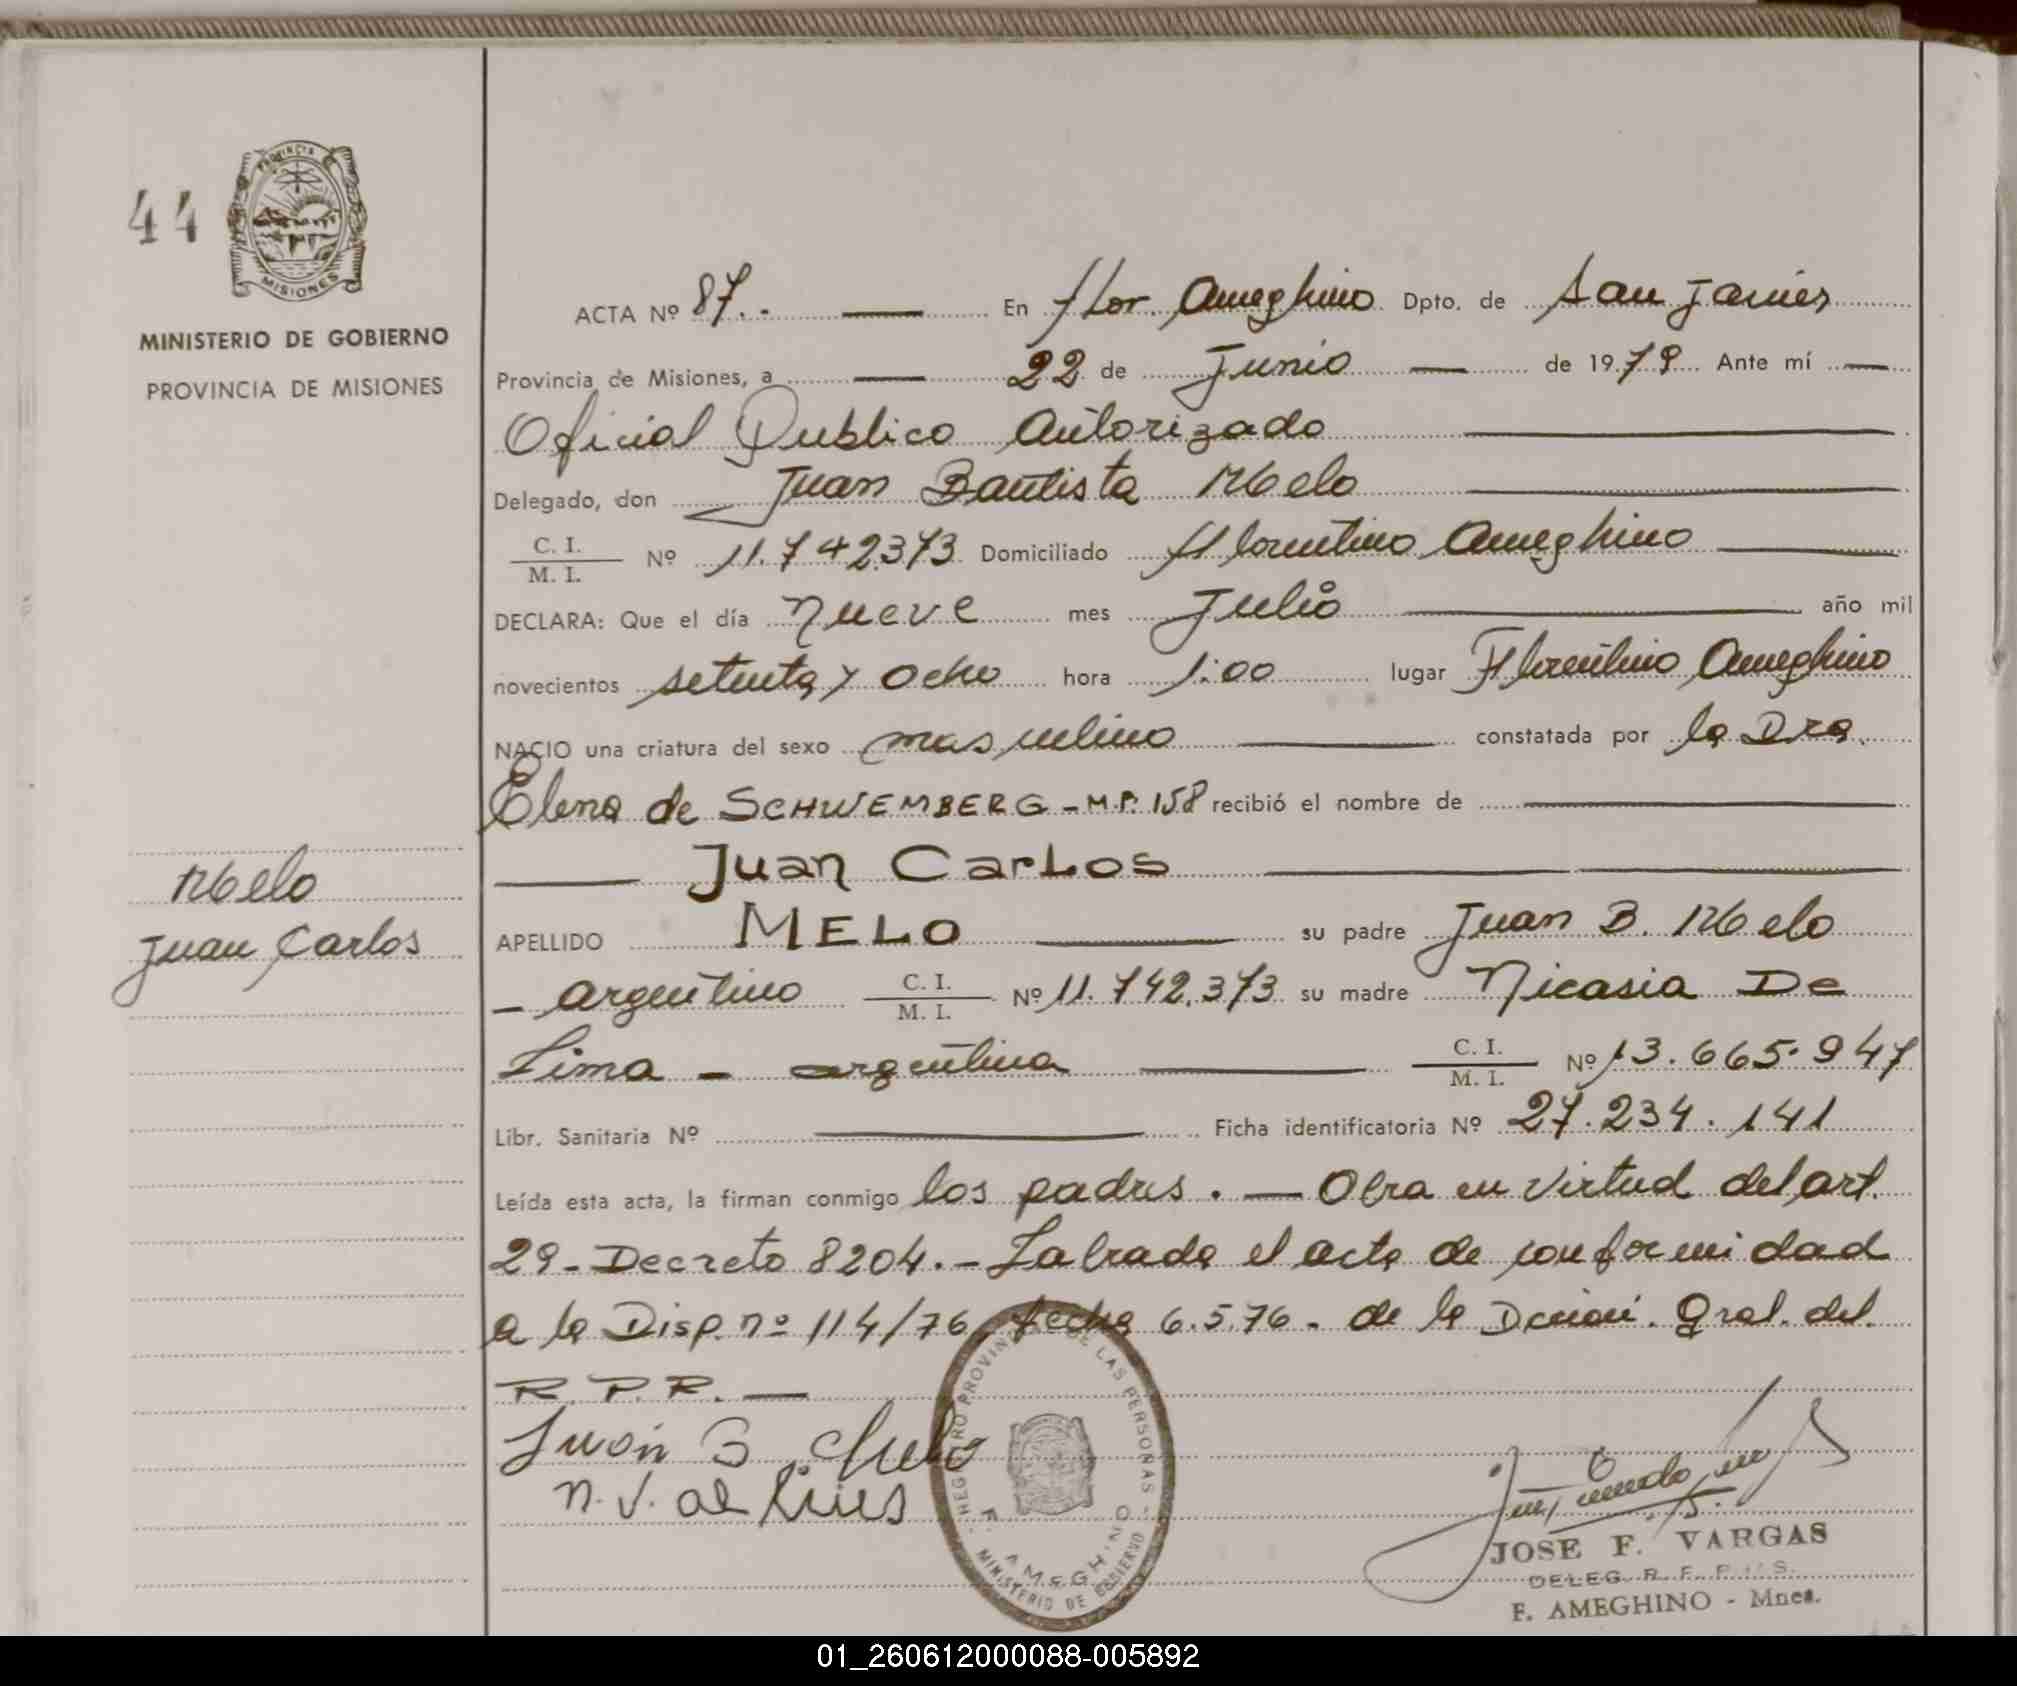 44
PROVINCIA
MISIONES
MINISTERIO DE GOBIERNO
PROVINCIA DE MISIONES
ACTA Nº 87. . En Flor. Ameghino Dpto. de San Javier
Provincia de Misiones, a 22 de Junio de 1979 Ante mí
Oficial Publico Autorizado
Delegado, don Juan Bautista Melo
C. I. / M. I. Nº 11.742373 Domiciliado Florentino Ameghino
DECLARA: Que el día nueve mes Julio año mil
novecientos setenta y ocho hora 1:00 lugar Florentino Ameghino
NACIO una criatura del sexo masculino constatada por la Dra.
Elena de SCHWEMBERG - M.P. 158 recibió el nombre de
Juan Carlos
APELLIDO MELO su padre Juan B. Melo
- argentino C. I. / M. I. Nº 11.742.373 su madre Nicasia De
Lima - argentina C. I. / M. I. Nº 13.665.947
Libr. Sanitaria Nº Ficha identificatoria Nº 27.234.141
Leída esta acta, la firman conmigo los padres. — Obra en virtud del art.
29 - Decreto 8204. - Labrada el acta de conformidad
a la Disp. nº 114/76, fecha 6.5.76. de la Dción. Gral. del.
R. P. P. —
Melo
Juan Carlos
Juan B. Melo
REGISTRO PROVINCIAL DE LAS PERSONAS
F. AMEGHINO
MINISTERIO DE GOBIERNO
JOSE F. VARGAS
DELEG. R.
F. AMEGHINO - Mnes.
01_260612000088-005892